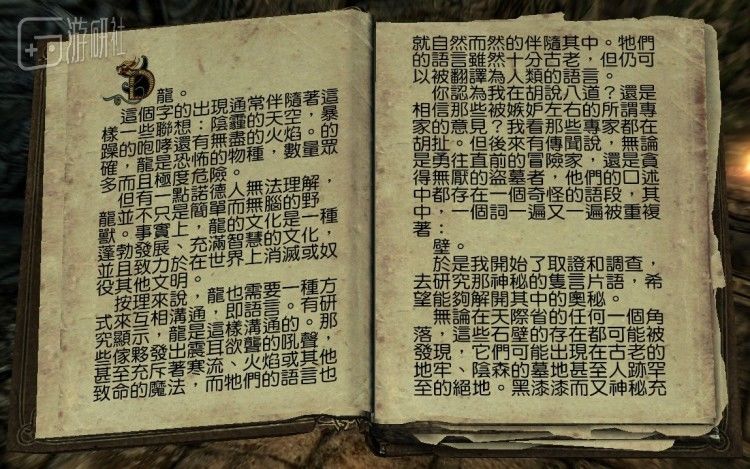 游研社
龍。
這個字的出現通常伴隨著這
樣一些聯想：陰霾的天空，暴
躁的咆哮還有無盡的火焰。的
確，龍是恐怖的物種，數量眾
多而且極度危險。
但有一點諾德人無法理解，
龍並不只是簡單而無腦的野
獸。事實上，龍的文化是一種
蓬勃發展、充滿智慧的文化，
並且致力於在世界上消滅或奴
役其他文明。
按理來說，龍也需要一種方
式來互相溝通，即語言。有研
究顯示，龍是這樣溝通的。那
些傢夥發出震耳欲聾的吼聲，
甚至充斥著寒流、火焰或其他
致命的魔法，而牠們的語言也
就自然而然的伴隨其中。牠們
的語言雖然十分古老，但仍可
以被翻譯為人類的語言。
你認為我在胡說八道？還是
相信那些被嫉妒左右的所謂專
家的意見？我看那些專家都在
胡扯。但後來有傳聞說，無論
是勇往直前的冒險家，還是貪
得無厭的盜墓者，他們的口述
中都存在一個奇怪的語段，其
中，一個詞一遍又一遍被重複
著：
壁。
於是我開始了取證和調查，
去研究那神秘的隻言片語，希
望能夠解開其中的奧秘。
無論在天際省的任何一個角
落，這些石壁的存在都可能被
發現，它們可能出現在古老的
地牢、陰森的墓地甚至人跡罕
至的絕地。黑漆漆而又神秘充